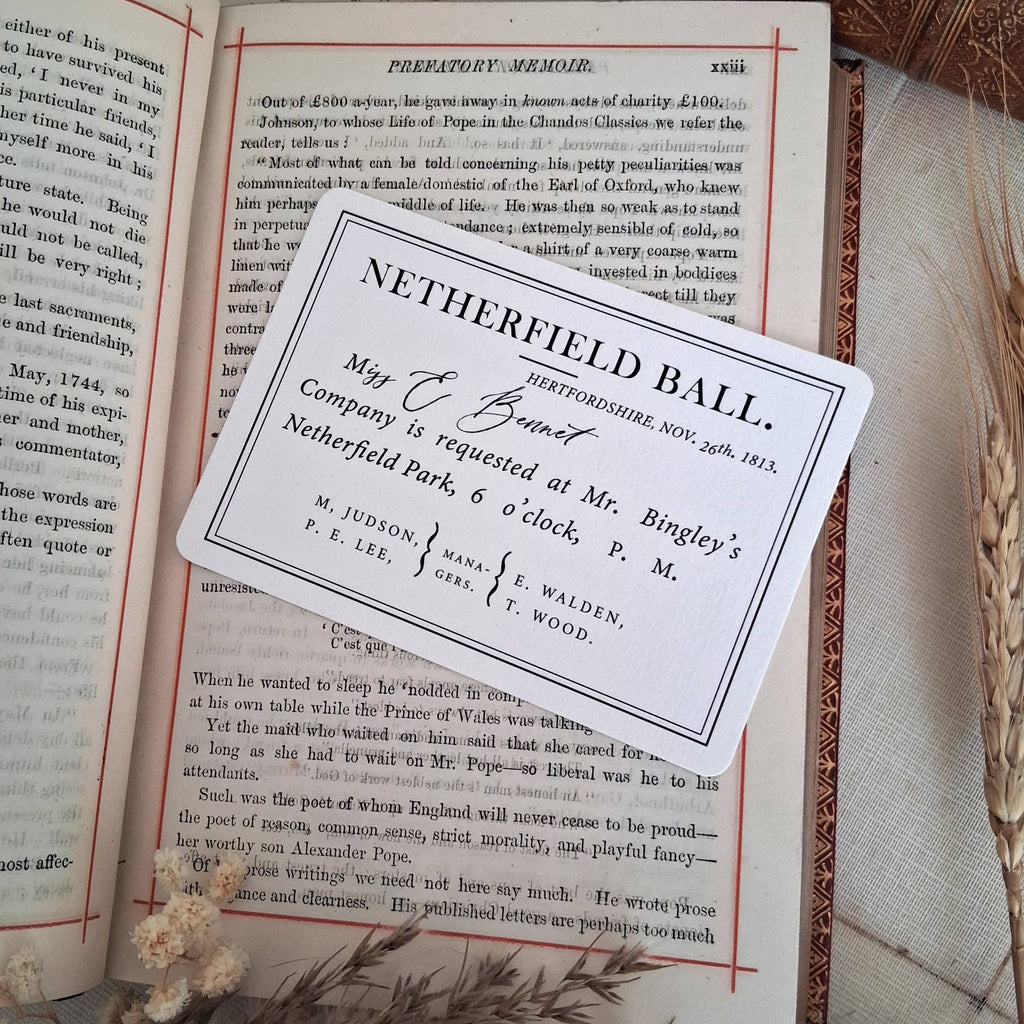 either of his present
to have survived his
ed, 'I never in my
is particular friends,
her time he said, 'I
myself more in his
ce.
ture state. Being
he would not die
uld not be called,
ill be very right;
e last sacraments,
e and friendship,
May, 1744, so
time of his expi-
er and mother,
commentator,
hose words are
the expression
ften quote or
most affec-
PREFATORY MEMOIR. xxiii
Out of £800 a-year, he gave away in known acts of charity £100.
Johnson, to whose Life of Pope in the Chandos Classics we refer the
reader, tells us:
"Most of what can be told concerning his petty peculiarities was
communicated by a female domestic of the Earl of Oxford, who knew
him perhaps middle of life. He was then so weak as to stand
in perpetua ndance; extremely sensible of cold, so
that he w a shirt of a very coarse warm
linen wit invested in boddices
made of rect till they
were l was
contra
three
he
no
to
NETHERFIELD BALL.
HERTFORDSHIRE, NOV. 26th. 1813.
Miss E Bennet
Company is requested at Mr. Bingley's
Netherfield Park, 6 o'clock, P. M.
M, JUDSON,
P. E. LEE,
MANA-
GERS.
E. WALDEN,
T. WOOD.
unresiste
'C'est p
C'est que l
When he wanted to sleep he 'nodded in comp
at his own table while the Prince of Wales was talking
Yet the maid who waited on him said that she cared for
so long as she had to wait on Mr. Pope—so liberal was he to his
attendants.
Such was the poet of whom England will never cease to be proud—
the poet of reason, common sense, strict morality, and playful fancy—
her worthy son Alexander Pope.
Of prose writings we need not here say much. He wrote prose
ance and clearness. His published letters are perhaps too much